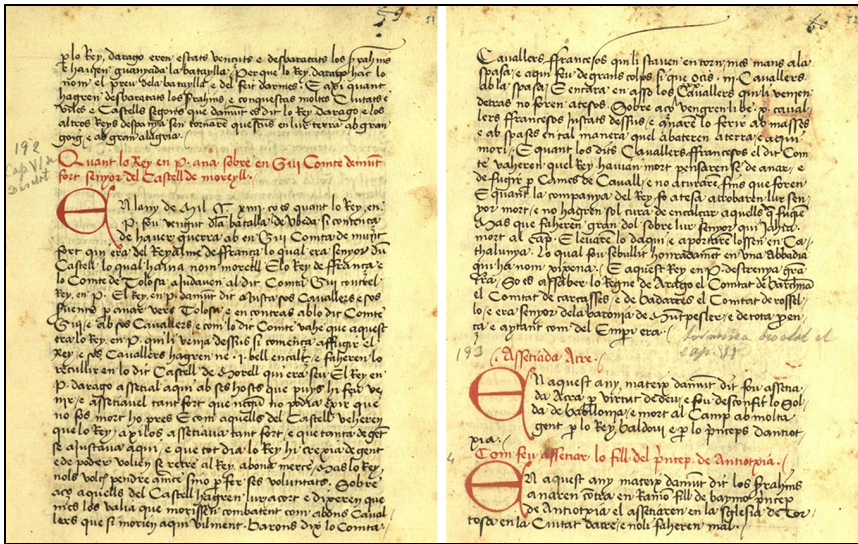 51
p lo Rey darago eren estats vençuts e desbaratats los srahins
e havien guanyada la batalla. Per que lo Rey darago hac lo
nom el preu dela batalla e del feit darmes. E apui quant
hagren desbaratats los srahins e conquestas moltes Ciutats e
viles e Castells segons que damunt es dit lo Rey darago e los
altres Reys despanya sen tornare quescus en lur terra ab gran
goig e ab gran alagria.
192
Cap VI de
Desclot
Quant lo Rey en P. ana sobre en Gui Comte demunt
fort senyor del Castell de moreyll.
En lany de Mil CC xiii ço es quant lo Rey en
P. fou vengut dla batalla de Ubeda si començà
de haver guerra ab en Gui Comte de munt
fort qui era del Reyalme de ffrança lo qual era senyor dun
Castell lo qual havia nom morell. E lo Rey de ffrança e
lo Comte de Tolosa aiudaven al dit Comte Gui contrel
Rey en P. El Rey en P. damunt dit aiusta sos Cavallers e sos
p anar vers Tolosa e en contras ab lo dit Comte
Gui e ab sos Cavallers e com lo dit Comte vahe que aquest
era lo Rey en P. qui li venia dessus si comença affugir el
Rey e sos Cavallers hagren ne .i. bell encalt e faheren lo
recullir en lo dit Castell de Morell qui era seu. El Rey en
P. darago assetial aqui ab ses hosts que puys hi feu ve
nir e assetiavel tant fort que negun no podia exir que
no fos mort ho pres. E com aquells del Castell veheren
que lo Rey axi los assetiava tant fort e que tanta degent
se aiustava aqui e que tot dia lo Rey hi crexia de gent
e de poder volien se retre al Rey a bona merce. Mas lo Rey
nols volch pendre aince sino p fer ses voluntats. Sobre
aço aquells del Castell hagren lur acort e dixeren que
mes los valia que morissen combatent com a bons Caval
lers que si morien aqui vilment. Barons dix lo Comte
52
Cavallers ffrancesos qui li staven en torn mes mans a la
spasa e aqui feu de grans colps si que ocis .iii. Cavallers
ab la spasa. E encara en asso los Cavallers qui li venien
detras no foren atesos. Sobre aço vengren li be .x. caval
lers ffrancesos justats dessus e anare lo ferir ab masses
e ab spases en tal manera quel abateren a terra e aqui
mori. E quant los dits Cavallers ffrancesos el dit Com
te vaheren quel Rey havian mort pensaren se de anar e
de fugir p Cames de Cavall e no aturare fins que foren
E quant la companya del Rey fo atesa e trobaren lur sen
yor mort e no hagren sol cura de encalcar aquells q fugien
Mas que faheren gran dol sobre lur senyor qui jahia
mort al Cap. E levare lo daqui e aportare lossen en Ca
thalunya. Lo qual fou sebullit honradament en una abbadia
qui ha nom xixena. E aquest Rey en P. destrenya gra
rra. So es assaber lo Regne de Arago el Comtat de barcinia
el Comtat de carcasses e de badarres el Comtat de rossel
lo e era senyor dela baronia de Muntpesler e de tota pen
ça e aytant com del Emper era.
termina Desclot el
cap. VI
193
Assetiada Acre.
En aquest any mateix damunt dit fou assetia
da Acra p virtut de deu e fou desconfit lo Sol
da de babillonia e mort al Camp ab molta
gent p lo Rey baldovi e p lo princeps dantiot
xia.
Com feu assetiar lo fill del princep de Antiotxia.
4
En aquest any mateix damunt dit los srahins
anaren contra en Ramo fill de baymo princep
de Antiotxia el assetiaren en la sglesia de Tor
tosa en la Ciutat dacre e noli faheren mal.